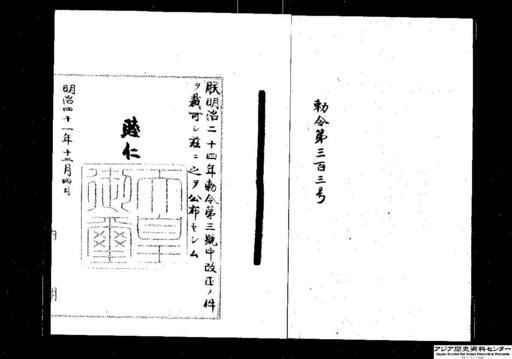 勅令第三百三号
朕明治二十四年勅令第三號中改正ノ件
ヲ裁可シ茲ニ之ヲ公布セシム
睦仁
天皇御璽
明治四十一年十二月四日
内閣
アジア歴史資料センター
Japan Center for Asian Historical Records